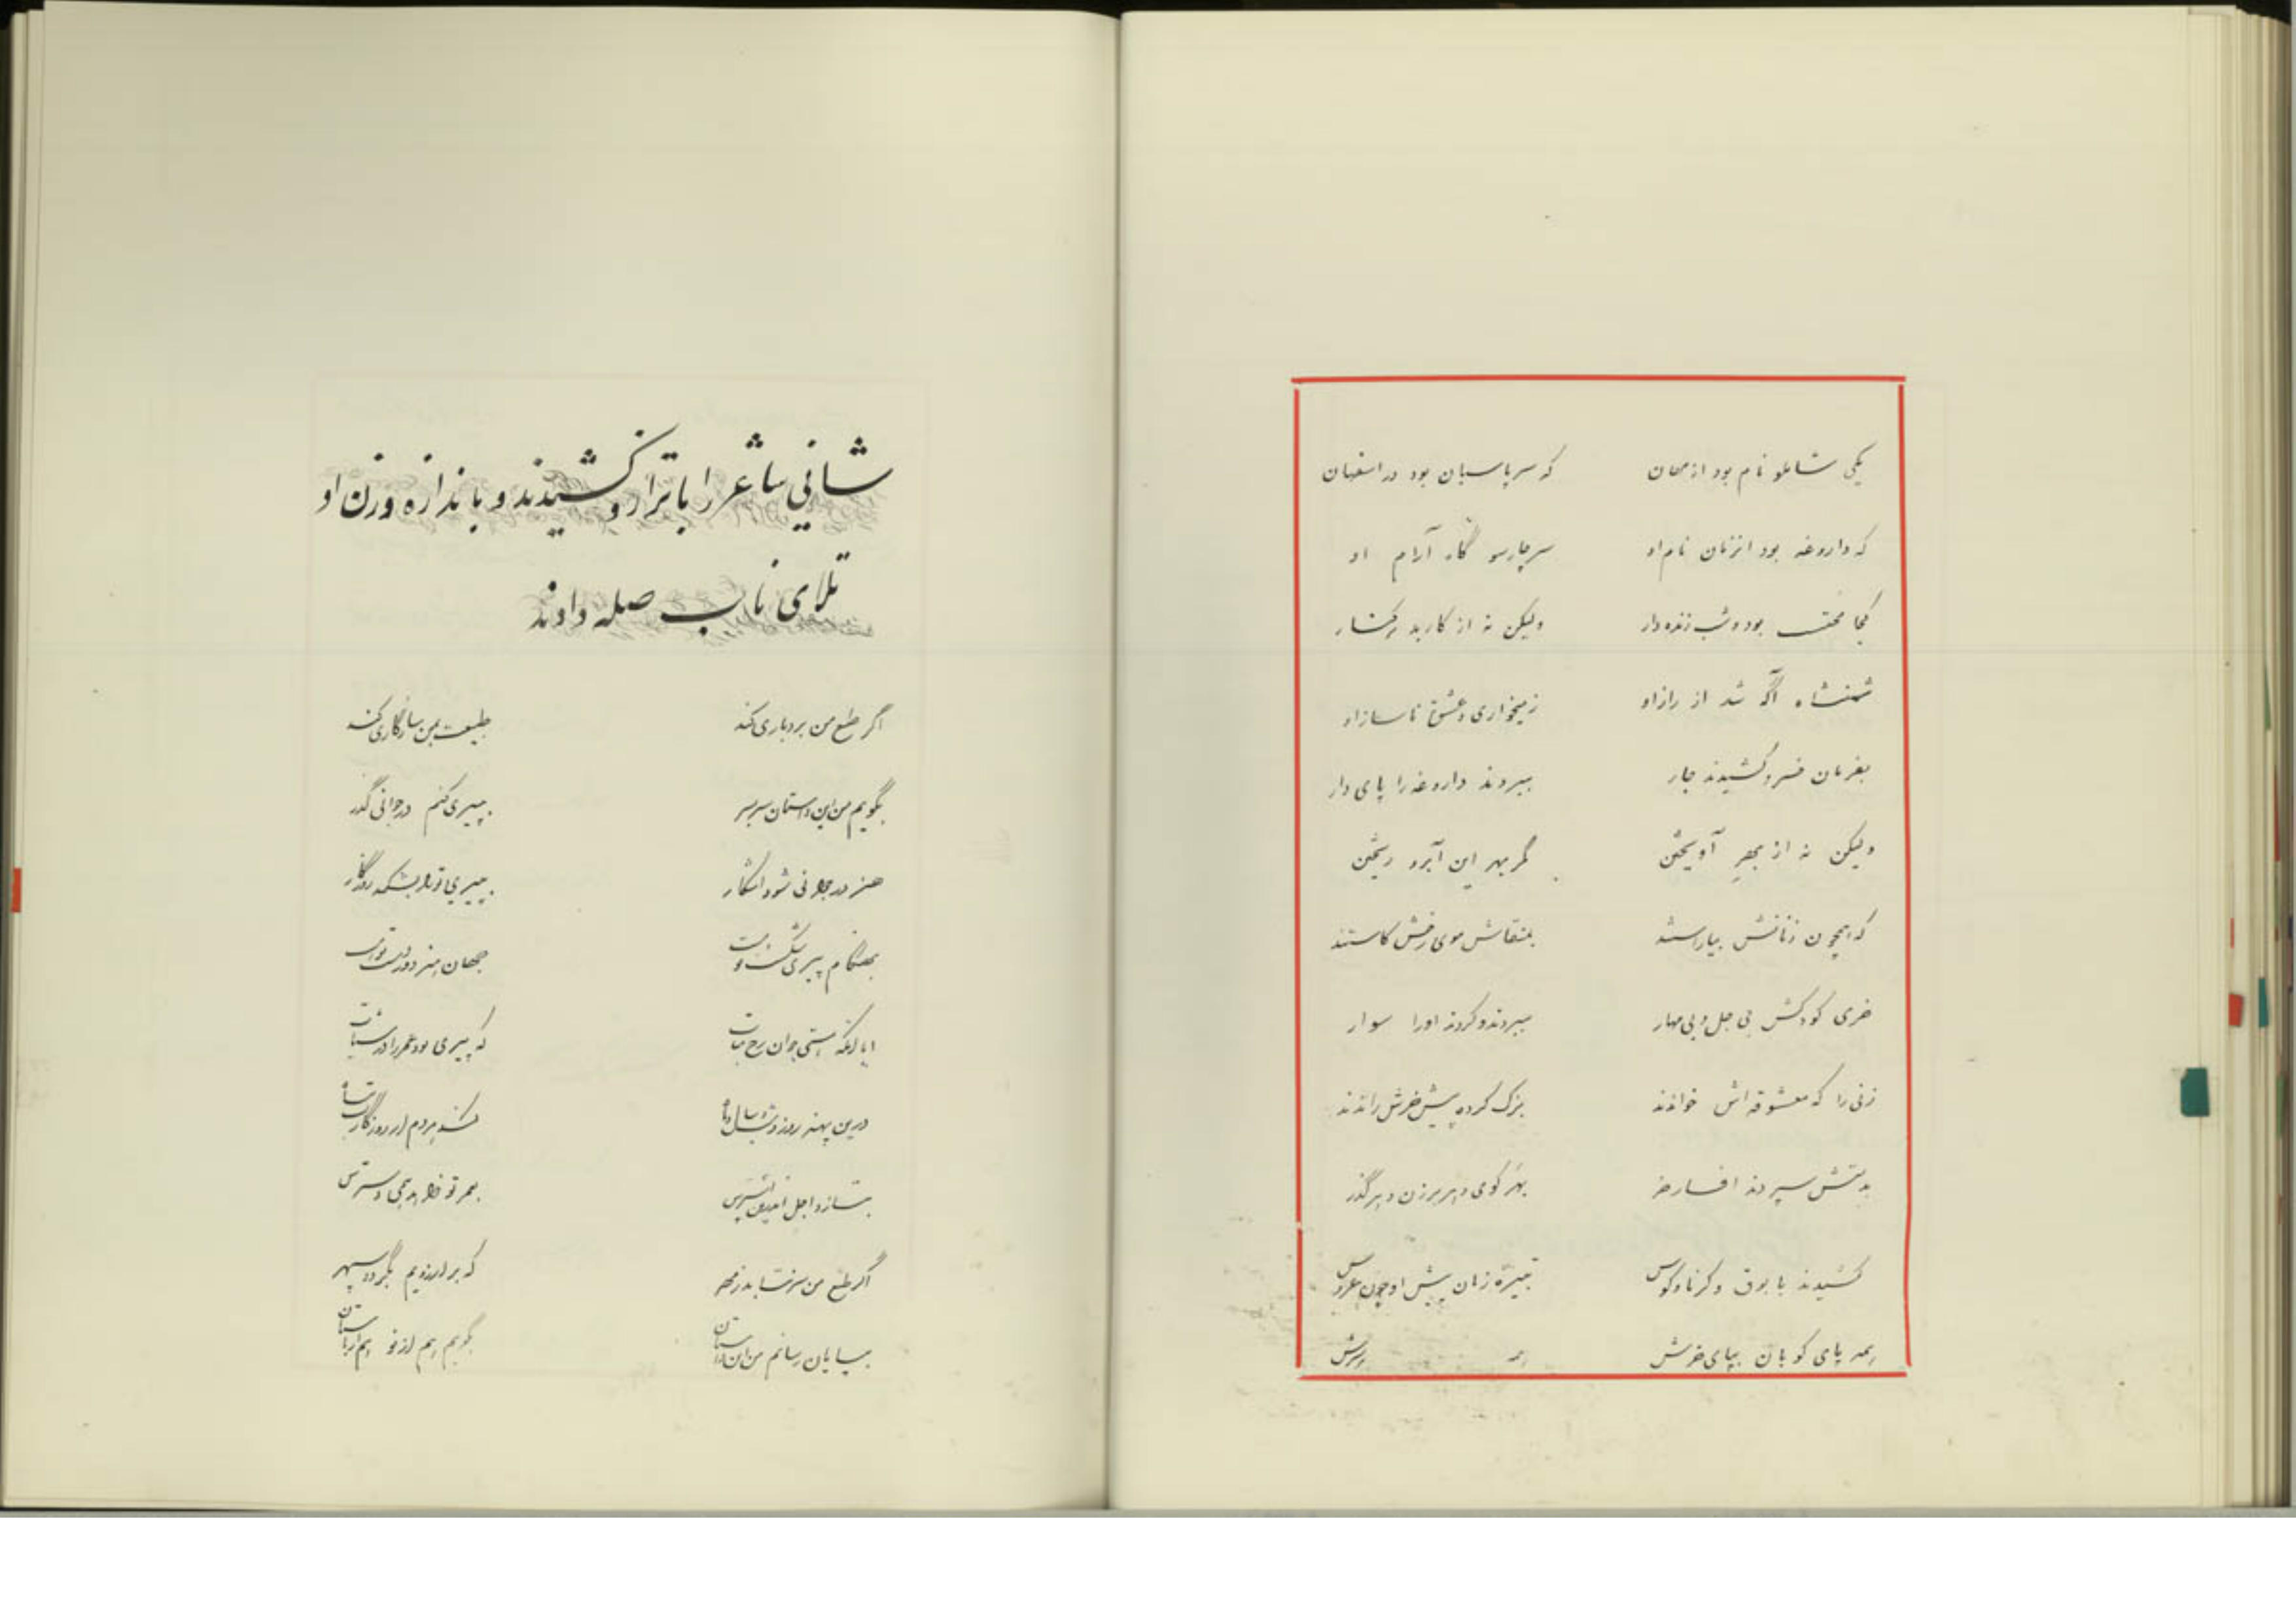 یکی شاملو نام بود از مهان که سر پاسبان بود در اسفهان
که داروغه بود انزمان نام او سر چارسو گاه آرام او
کجا محتسب بود و شب زنده دار ولیکن نه از کار بد رستگار
شهنشاه آگه شد از راز او ز میخواری و عشق ناساز او
بفرمان خسرو کشیدند جار ببردند داروغه را پای دار
ولیکن نه از بهر آویختن مگر بهر این آبرو ریختن
که همچون زنانش بیاراستند بمنقاش موی رخش کاستند
خری کودکش بی جل و بی مهار ببردند و کردند او را سوار
زنی را که معشوقه اش خواندند بزک کرده پیش خرش راندند
بدستش سپردند افسار خر بهر کوی و هر برزن و هر گذر
کشیدند با بوق و کرنا و کوس تبیره زنان پیش او چون عروس
همه پای کوبان بپای خرش همه
شانی شاعر را با ترازو کشیدند و باندازه وزن او
تلای ناب صله دادند
اگر طبع من بردباری کند طبیعت بمن سازگاری کند
بگویم من این داستان سر بسر بپیری کنم در جوانی گذر
هنر در جوانی شود آشکار بپیری تو را بشکند روزگار
بهنگام پیری جهان هنر دور
ایا آنکه هستی جوان که پیری بود عمر را در
درین پهنه روز و شب و سال و ماه کند مردم از روزگارت تباه
بتازد اجل بهر تو خواهد همی دسترس
اگر طبع من سر نتابد ز مهر که بر آرزویم بگردد سپهر
بپایان رسانم من این داستان بگویم هم از نو هم از باستان